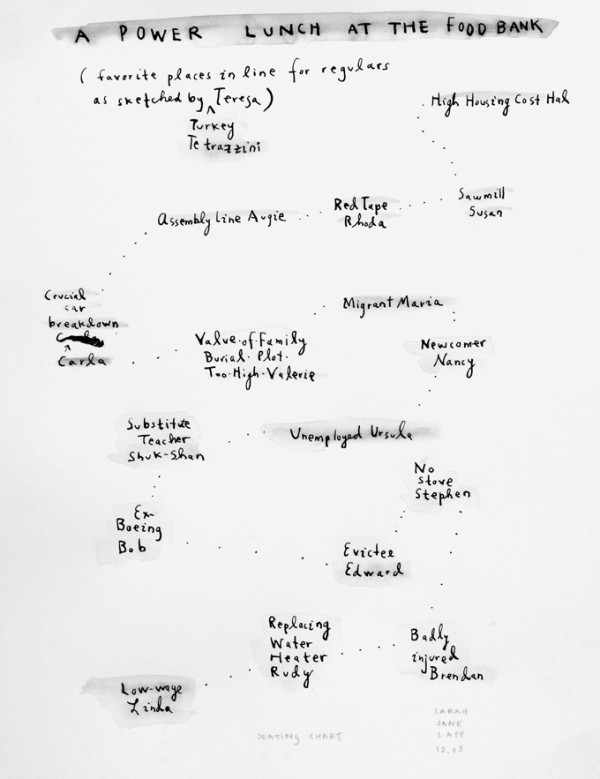 A POWER LUNCH AT THE FOOD BANK
(favorite places in line for regulars
as sketched by ^ Teresa)
Turkey
Tetrazzini
High Housing Cost Hal
Sawmill
Susan
Red Tape
Rhoda
Assembly Line Augie
Crucial
car
breakdown
^
Carla
Value-of-Family
Burial-Plot-
Too-High-Valerie
Migrant Maria
Newcomer
Nancy
Unemployed Ursula
Substitute
Teacher
Shuk-Shan
Ex-
Boeing
Bob
Evictee
Edward
No
Stove
Stephen
Badly
injured
Brendan
Replacing
Water
Heater
Rudy
Low-wage
Linda
SEATING CHART
SARAH
JANE
LAPP
12.03